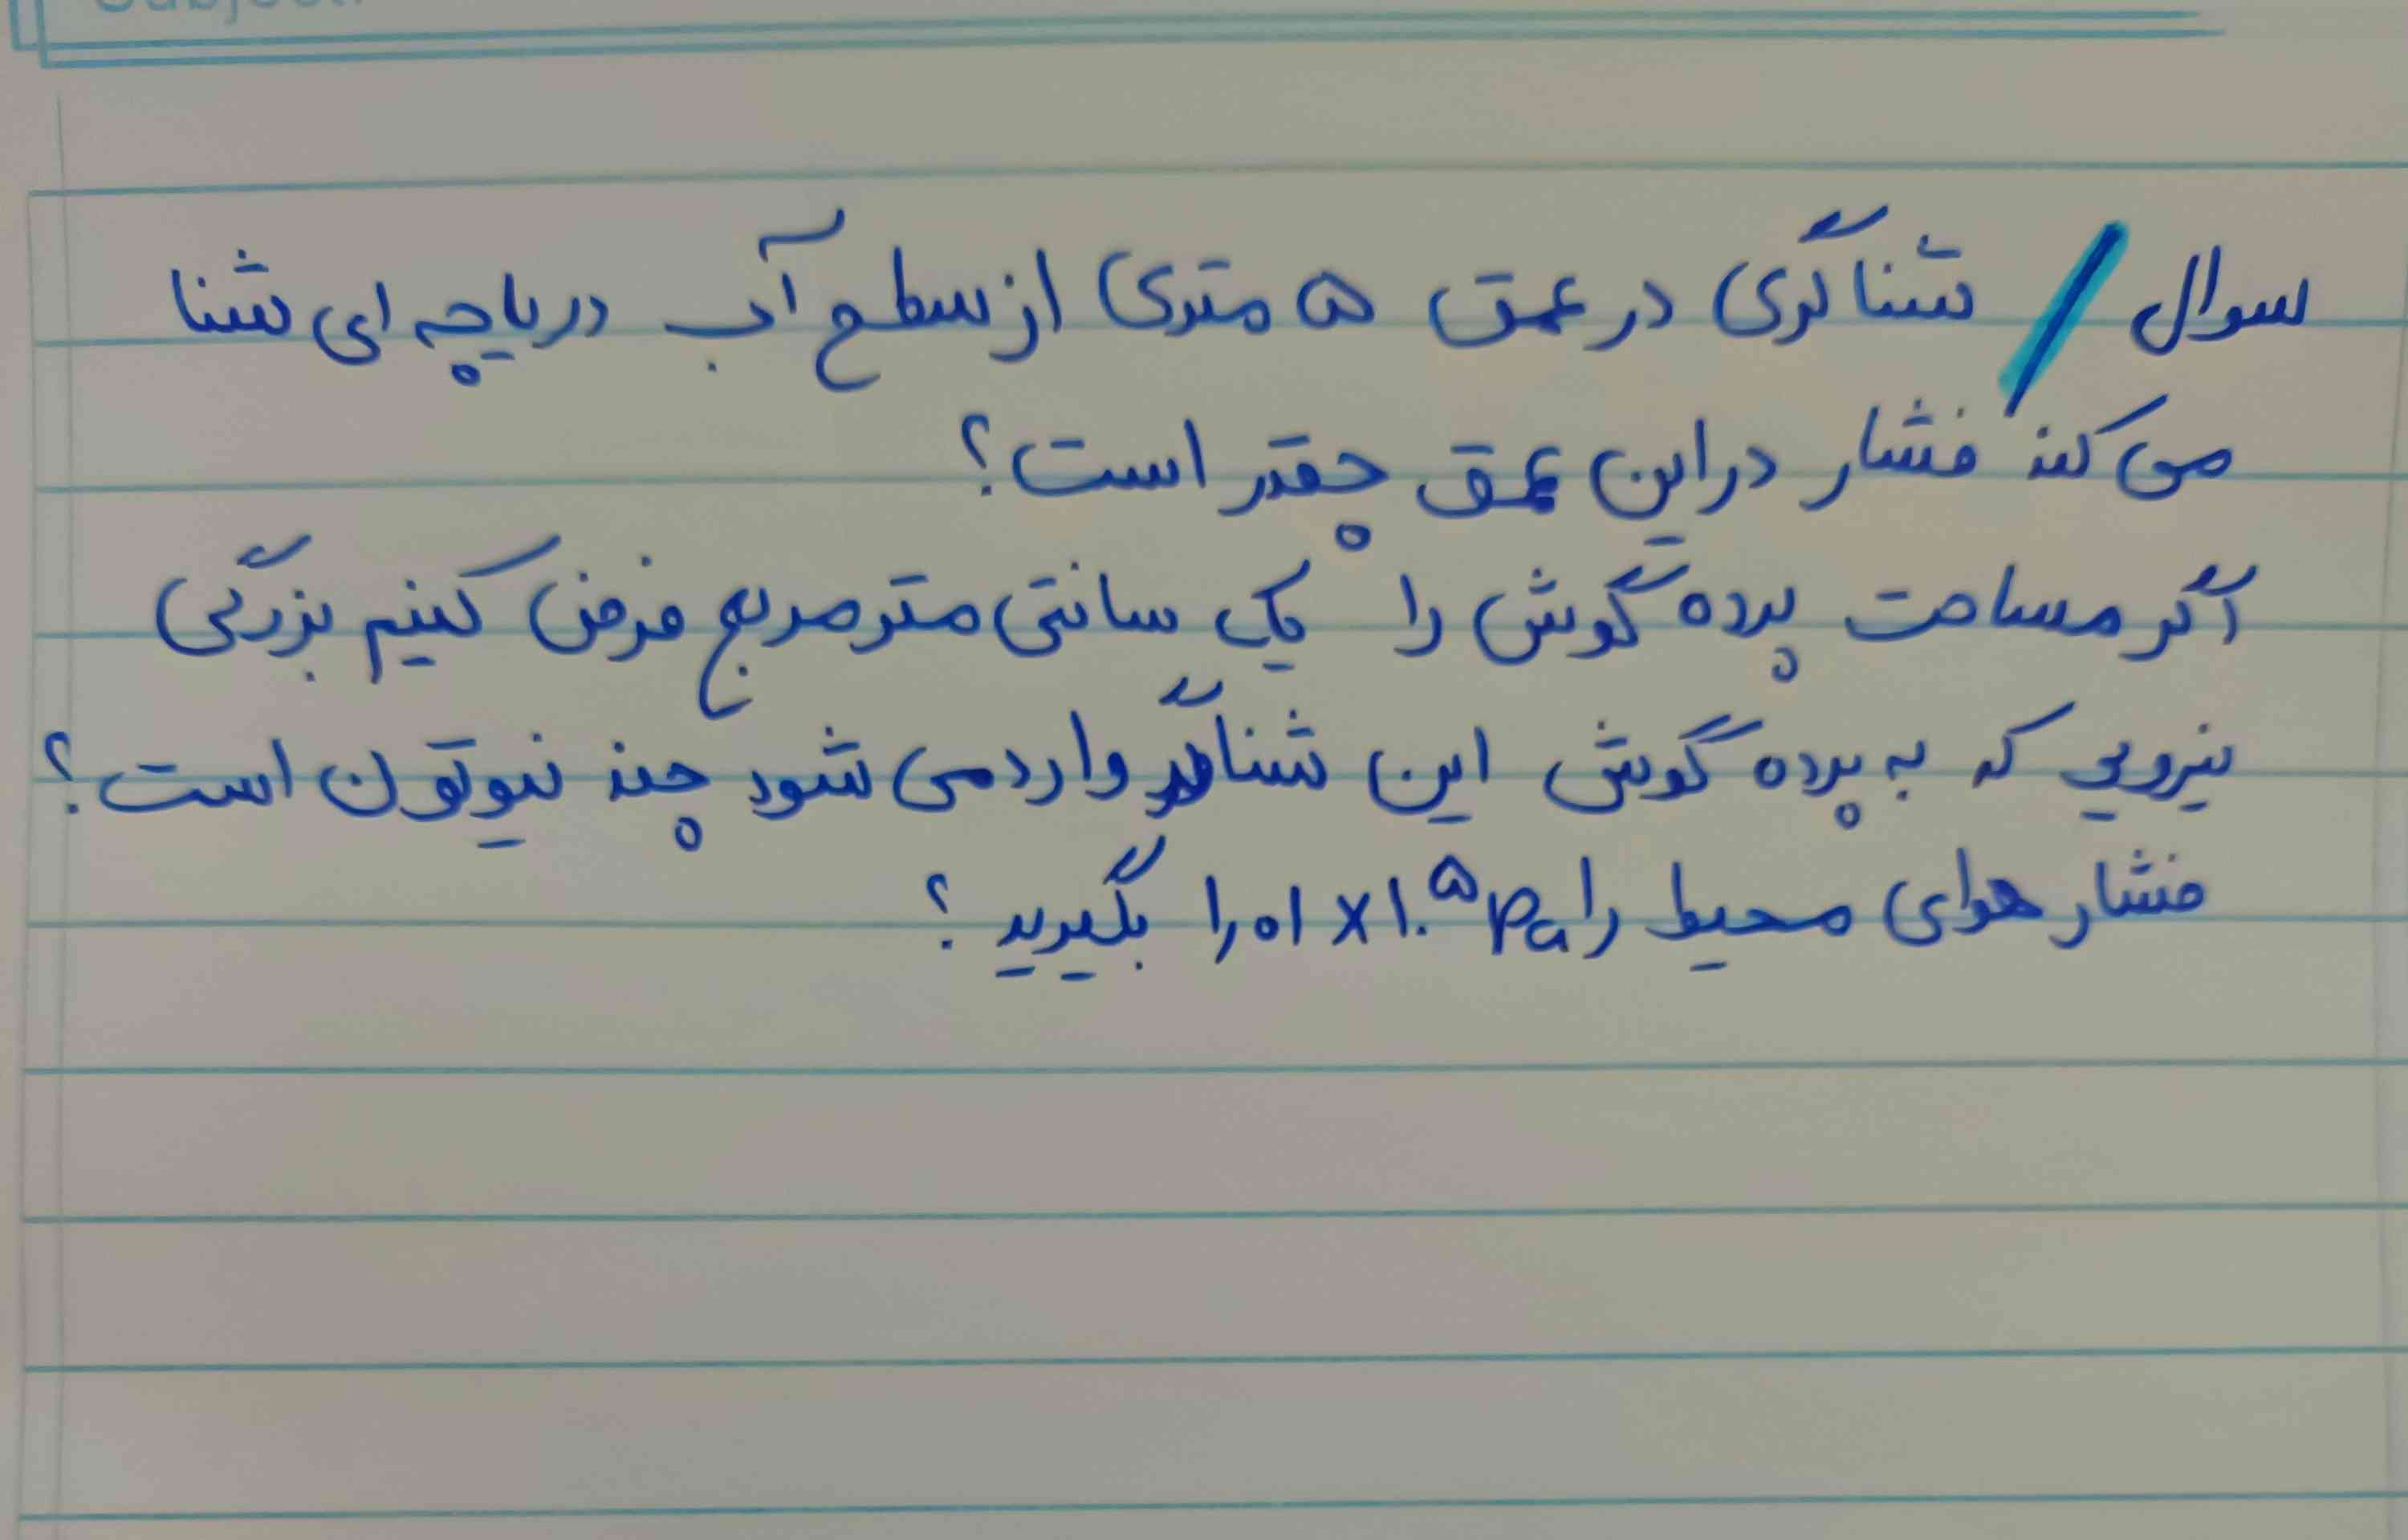 سوال / شناگری در عمق ۵ متری از سطح آب دریاچه ای شنا
می کند فشار در این عمق چقدر است؟
اگر مساحت پرده گوش را یک سانتی متر مربع فرض کنیم بزرگی
نیرویی که به پرده گوش این شناگر وارد می شود چند نیوتون است؟
فشار هوای محیط را ۱٫۰۱ × ۱۰^۵ Pa بگیرید؟